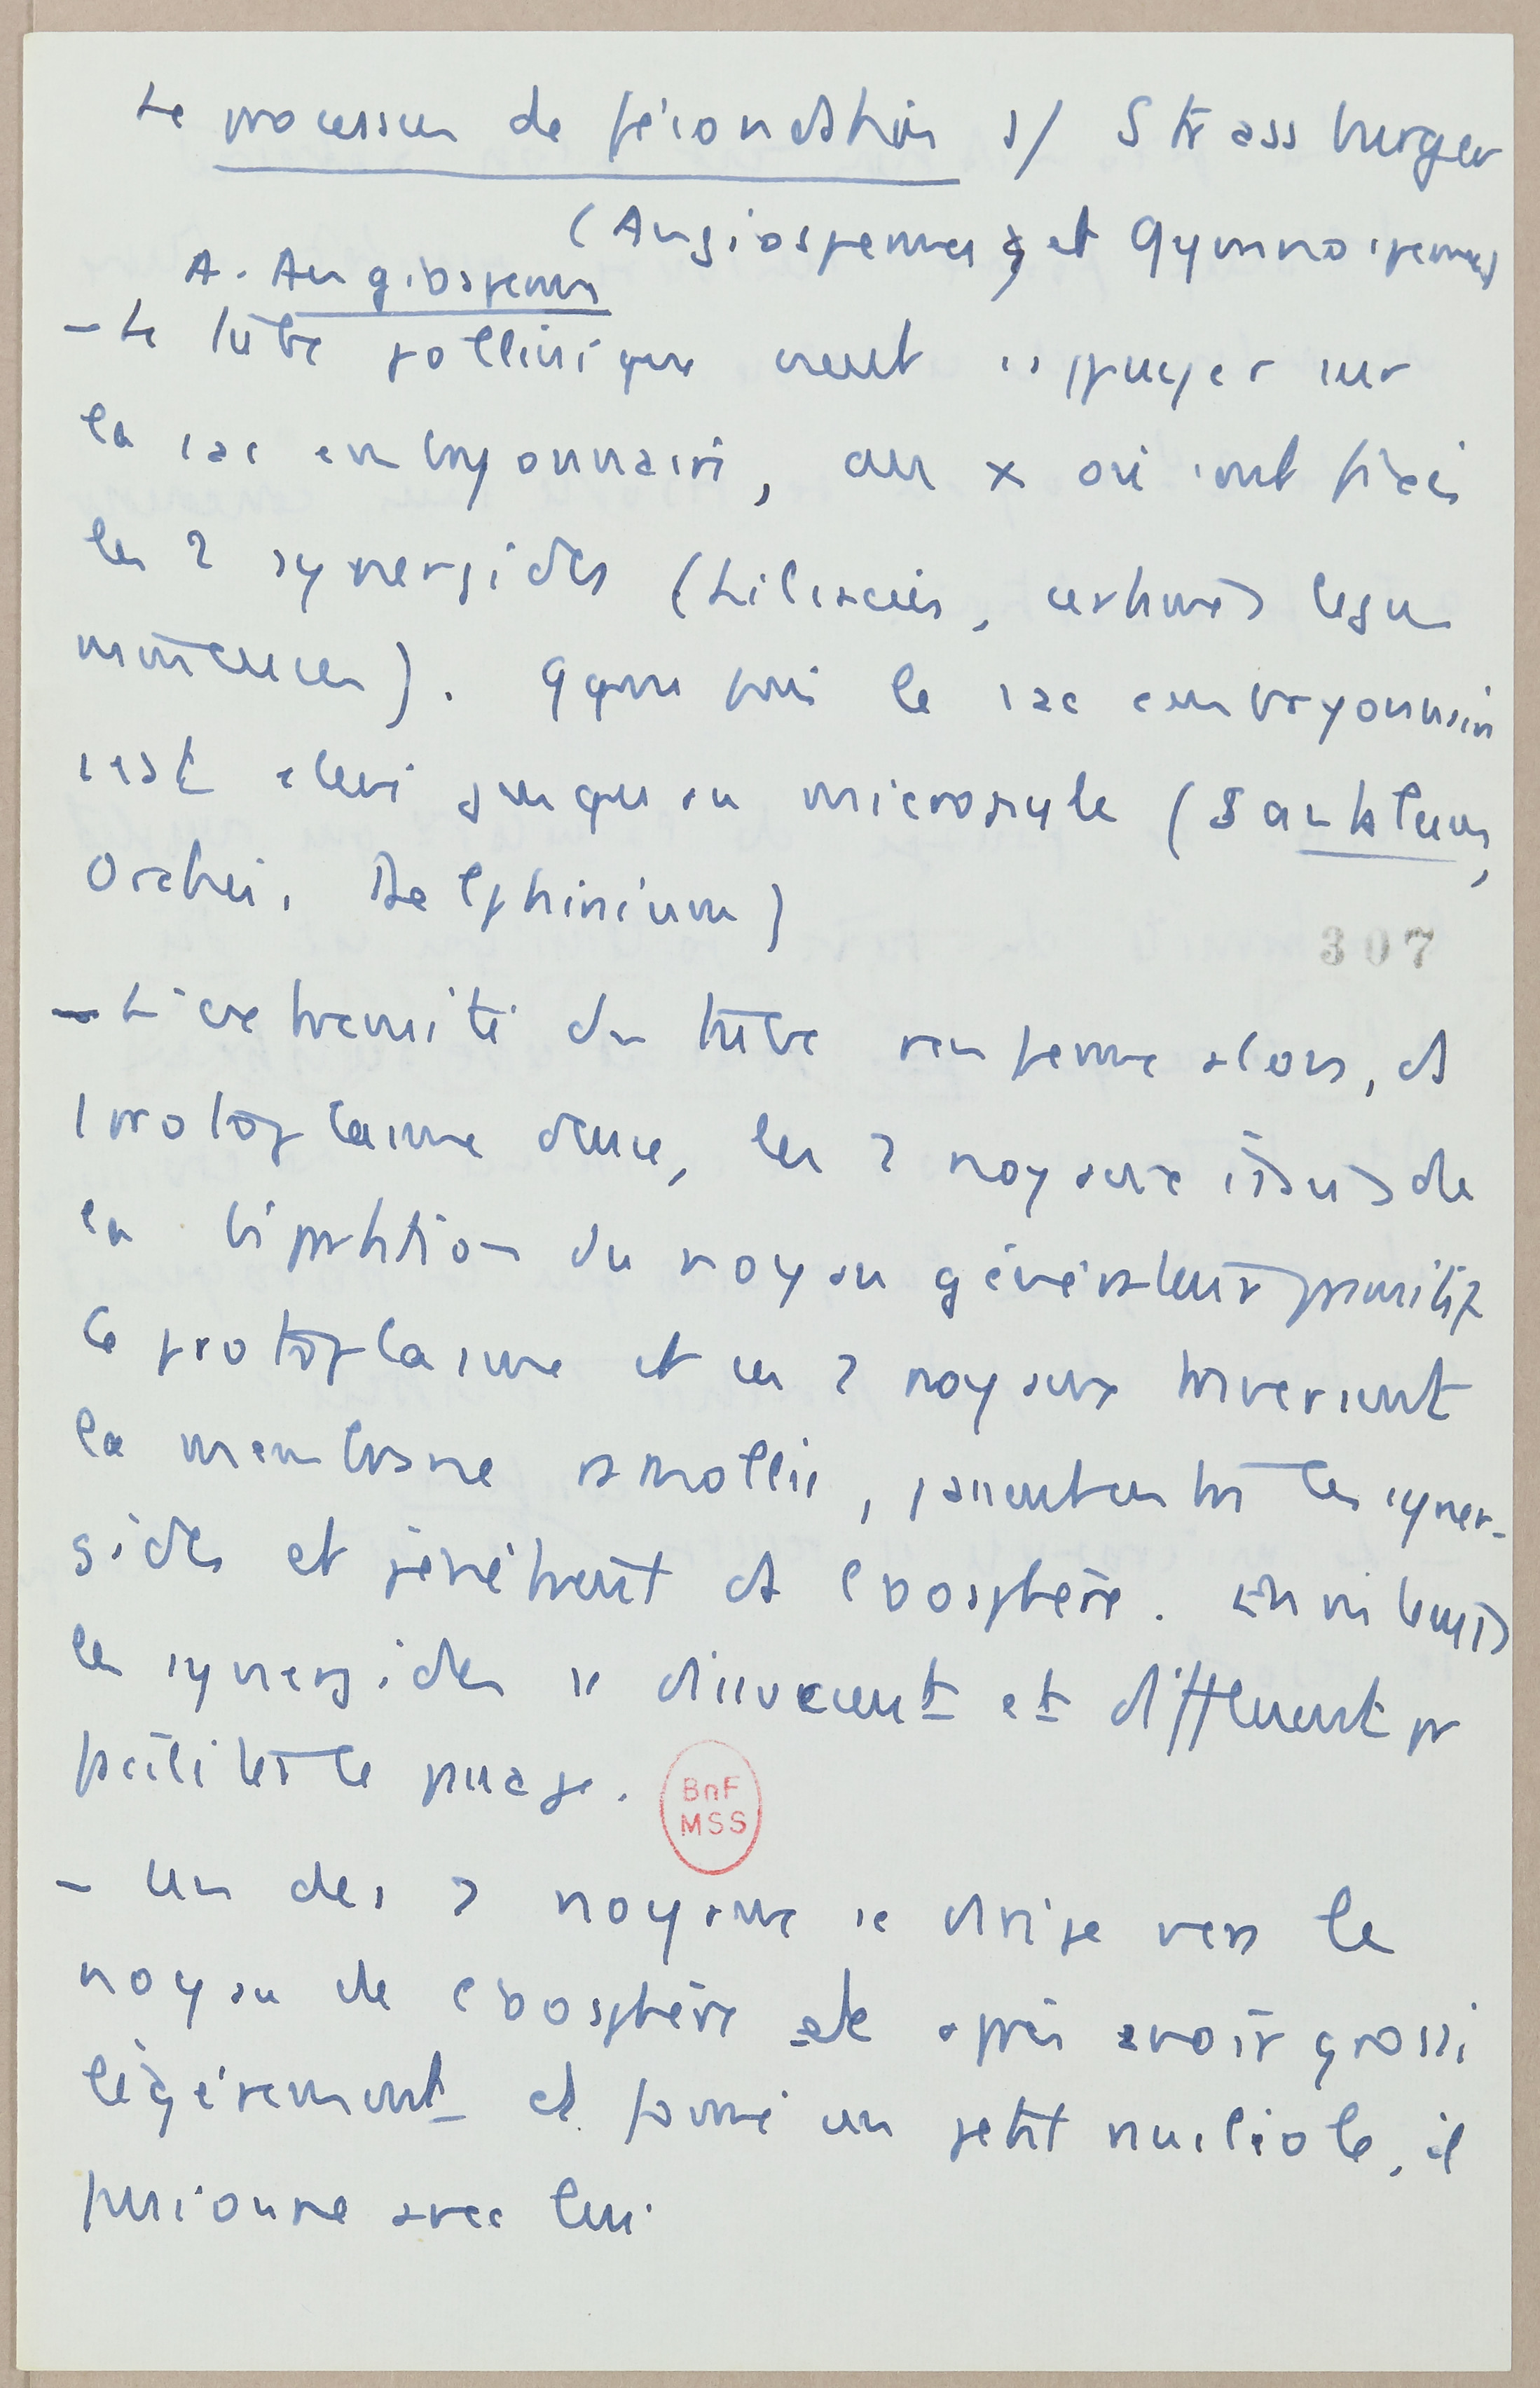 Le processus de fécondation s/ Strassburger
(Angiospermes et Gymnospermes)
A. Angiospermes
- Le tube pollinique vient s'appuyer sur
la sac embryonnaire, au x où sont fixés
les 2 synergides (Liliacées, certaines légu
mineuses). Qque fois le sac embryonnaire
s'est élevé jusqu'au micropyle (Santalum,
Orchis, Delphinium)
- L'extrémité du tube renferme alors, ds
1 protoplasme dense, les 2 noyaux issus de
la bipartition du noyau générateur primitif
Le protoplasme et ces 2 noyaux traversent
la membrane ramollie, passent entre les syner-
gides et pénètrent ds l'oosphère.
les synergides se dissocient et diffluent pr
faciliter le passage.
- Un des 2 noyaux se dirige vers le
noyau de l'oosphère et après avoir grossi
légèrement et formé un petit nucléole, il
fusionne avec lui.
307
BnF
MSS